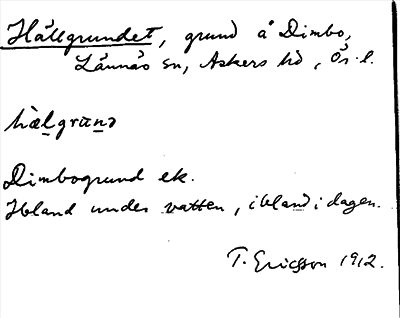 Hällgrundet, grund å Dimbo,
Lännäs sn, Askers hd, Ör. l.
hälgrund
Dimbogrund ek.
Ibland under vatten, ibland i dagen.
T. Ericsson 1912.